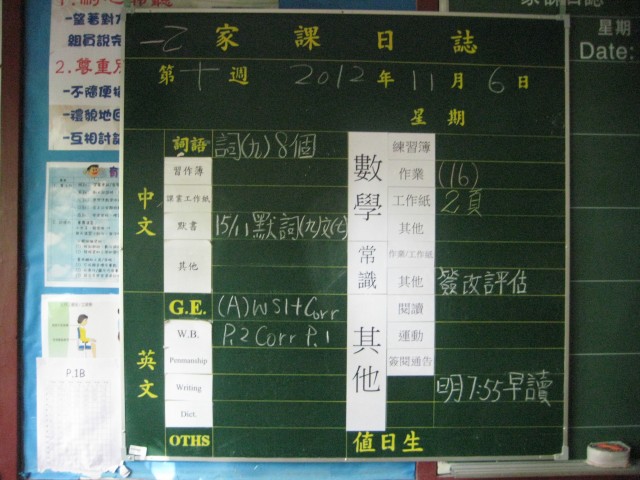 一乙 家課日誌
第十週 2012年11月6日
星期
中文
詞語 詞(九)8個
習作簿
課業工作紙
默書 15/11默詞(九)文(七)
其他
英文
G.E. (A)WS1+Corr
W.B. P.2 Corr P.1
Penmanship
Writing
Dict.
OTHS
數學
練習簿
作業 (16)
工作紙 2頁
其他
常識
作業/工作紙
其他 簽改評估
其他
閱讀
運動
簽閱通告
明7:55早讀
值日生
-望著對方
組員說完
2.尊重別
-不隨便
-禮貌地回
-互相討論
P.1B
家課日誌
星期
Date: